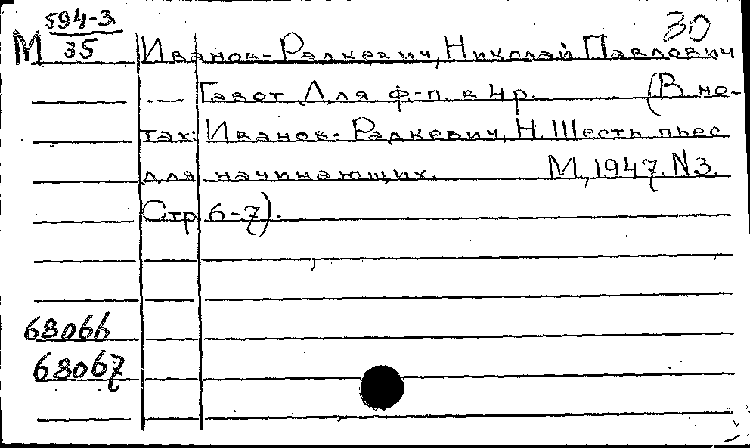 594-3
30
М 35 Иванов-Радкевич, Николай Павлович
— Гавот. Для ф-п. в 4 р. (В но-
тах: Иванов-Радкевич, Н. Шесть пьес
для начинающих. М., 1947. N 3.
Стр. 6-7).
68066
68067